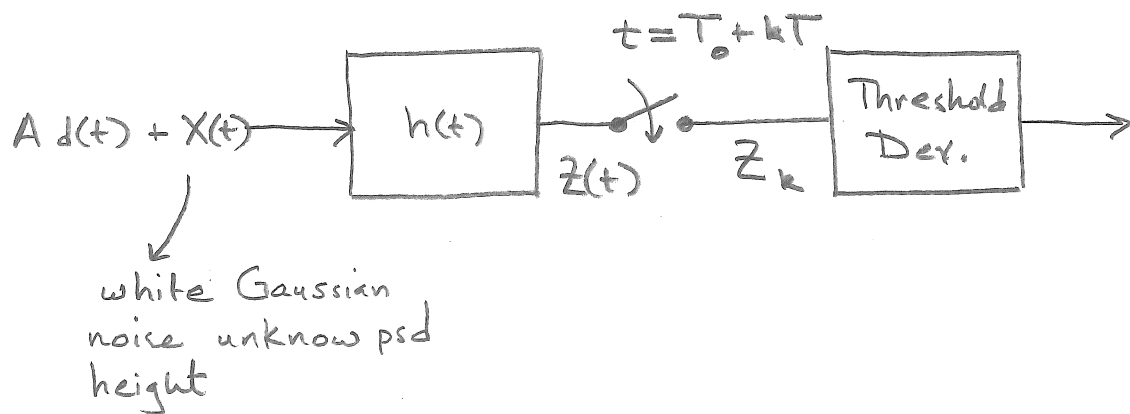 t = T₀ + kT
A d(t) + X(t)
h(t)
Z(t)
Z_k
Threshold
Dev.
white Gaussian
noise unknow psd
height